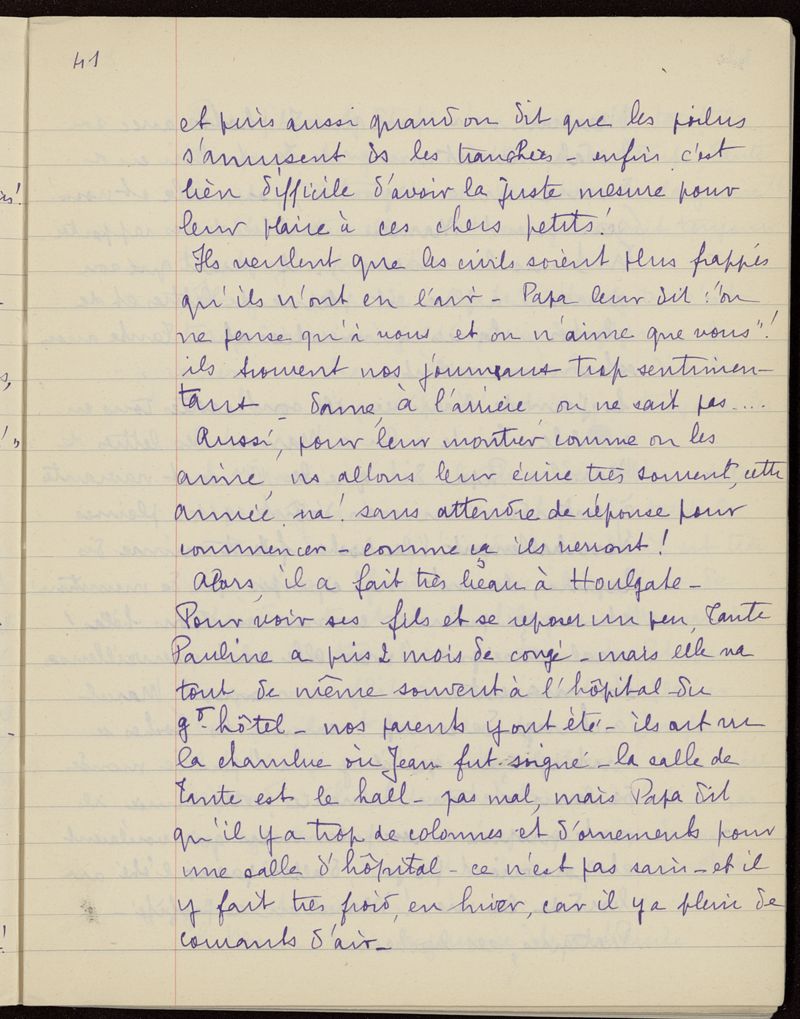 41
et puis aussi quand on dit que les poilus
s'amusent ds les tranchées - enfin c'est
bien difficile d'avoir la juste mesure pour
leur plaire à ces chers petits!
Ils veulent que les civils soient plus frappés
qu'ils n'ont en l'air - Papa leur dit : "on
ne pense qu'à vous et on n'aime que vous"!
ils trouvent nos journaux trop sentimen-
taux - dame, à l'arrière on ne sait pas....
Aussi, pour leur montrer comme on les
aime, ns allons leur écrire très souvent, cette
année, na! sans attendre de réponse pour
commencer - comme ça ils verront!
Alors, il a fait très beau à Houlgate -
Pour voir ses fils et se reposer un peu, Tante
Pauline a pris 2 mois de congé - mais elle va
tout de même souvent à l'hôpital du
gd hôtel - nos parents y ont été - ils ont vu
la chambre où Jean fut soigné - la salle de
Tante est le hall - pas mal, mais Papa dit
qu'il y a trop de colonnes et d'ornements pour
une salle d'hôpital - ce n'est pas sain - et il
y fait très froid, en hiver, car il y a plein de
courants d'air -